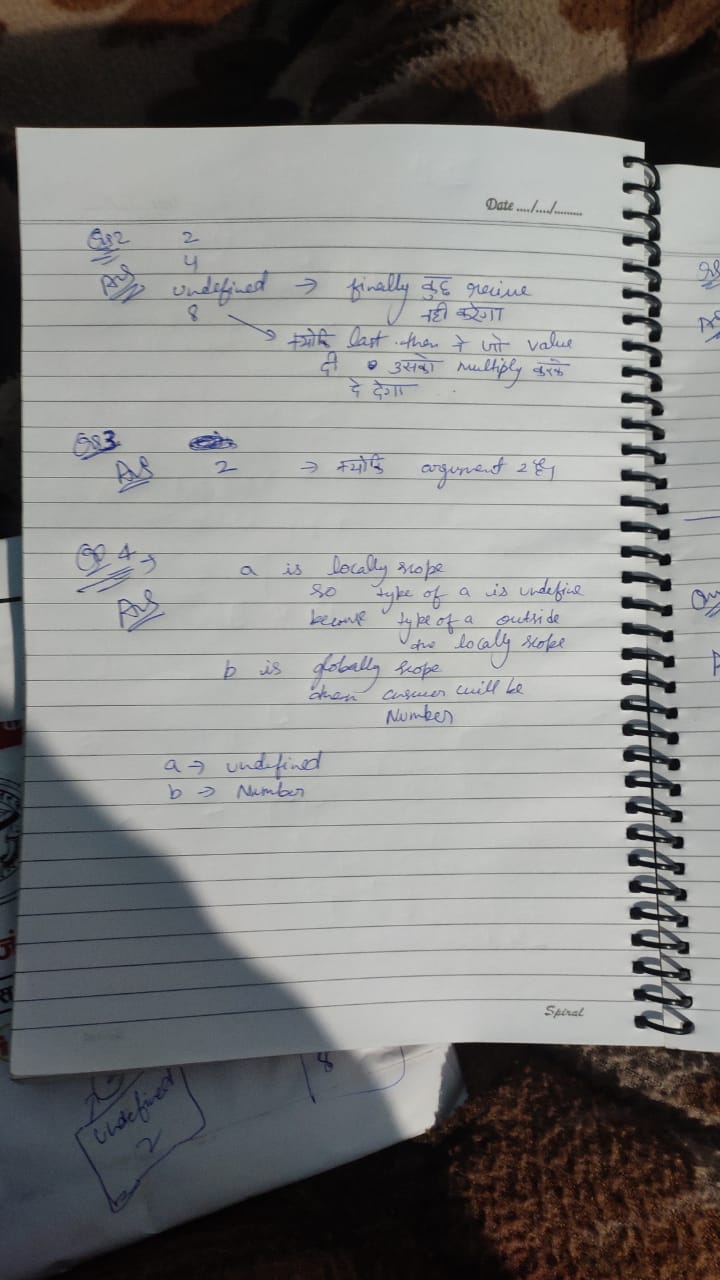 Date ..../..../.........
Qs2 2
4
Ans undefined → finally कुछ receive
नहीं करेगा
8 → क्योंकि last .then ने जो value
दी उसको multiply करके
दे देगा
Qs3
Ans 2 → क्योंकि argument 2 है।
Qs 4 →
a is locally scope
Ans so type of a is undefine
because type of a outside
the locally scope
b is globally scope
then answer will be
Number
a → undefined
b → Number
Spiral
8
undefined
2